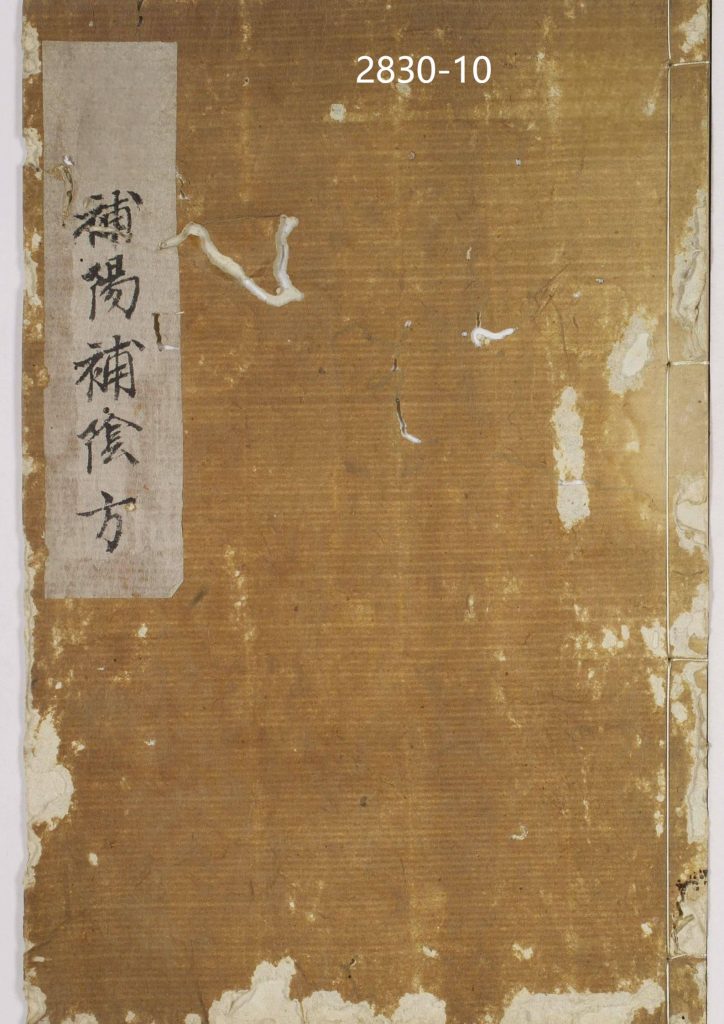 2830-10
補陽補陰方